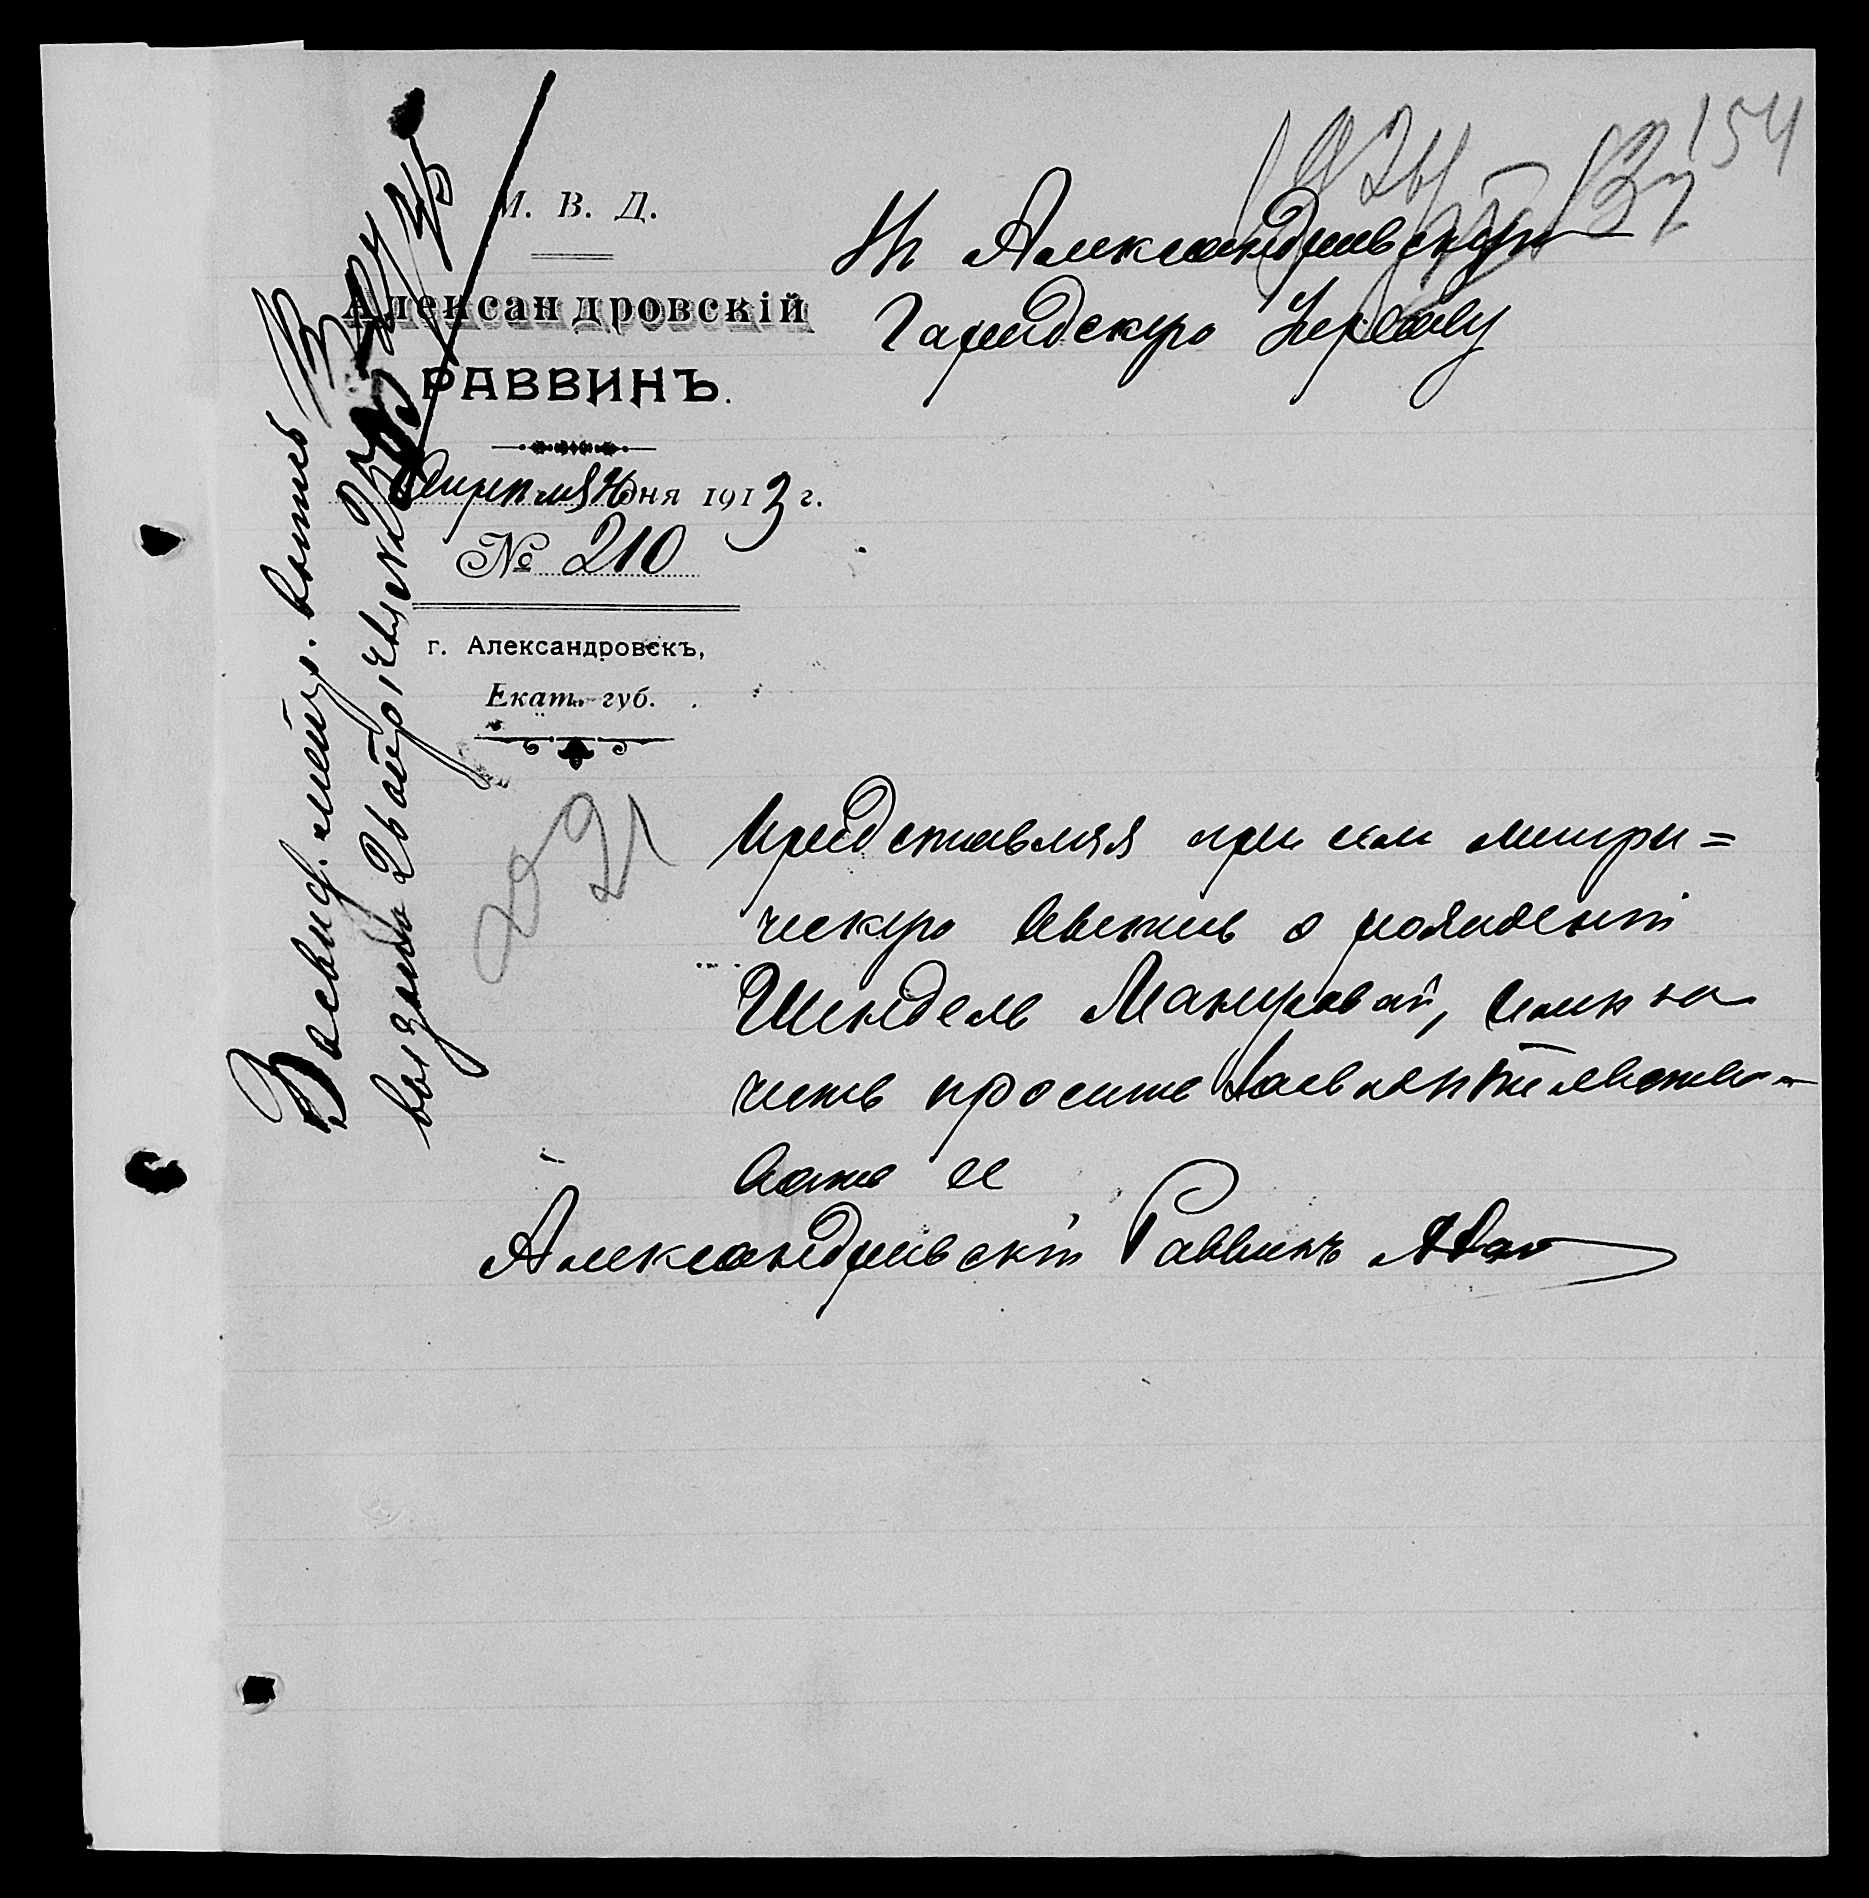 154
М. В. Д.
Александровскій
РАВВИНЪ.
Апреля 24 дня 1913 г.
№ 210
г. Александровскъ,
Екат. губ.
Въ Александровскую
Городскую Управу
Представляя при семъ метри=
ческую выпись о рожденіи
Шендель Мануровой, имѣю
честь просить засвидѣтельство-
вать ее
Александровскій Раввинъ
Засвид. метр. выпись
26 апр.
2091